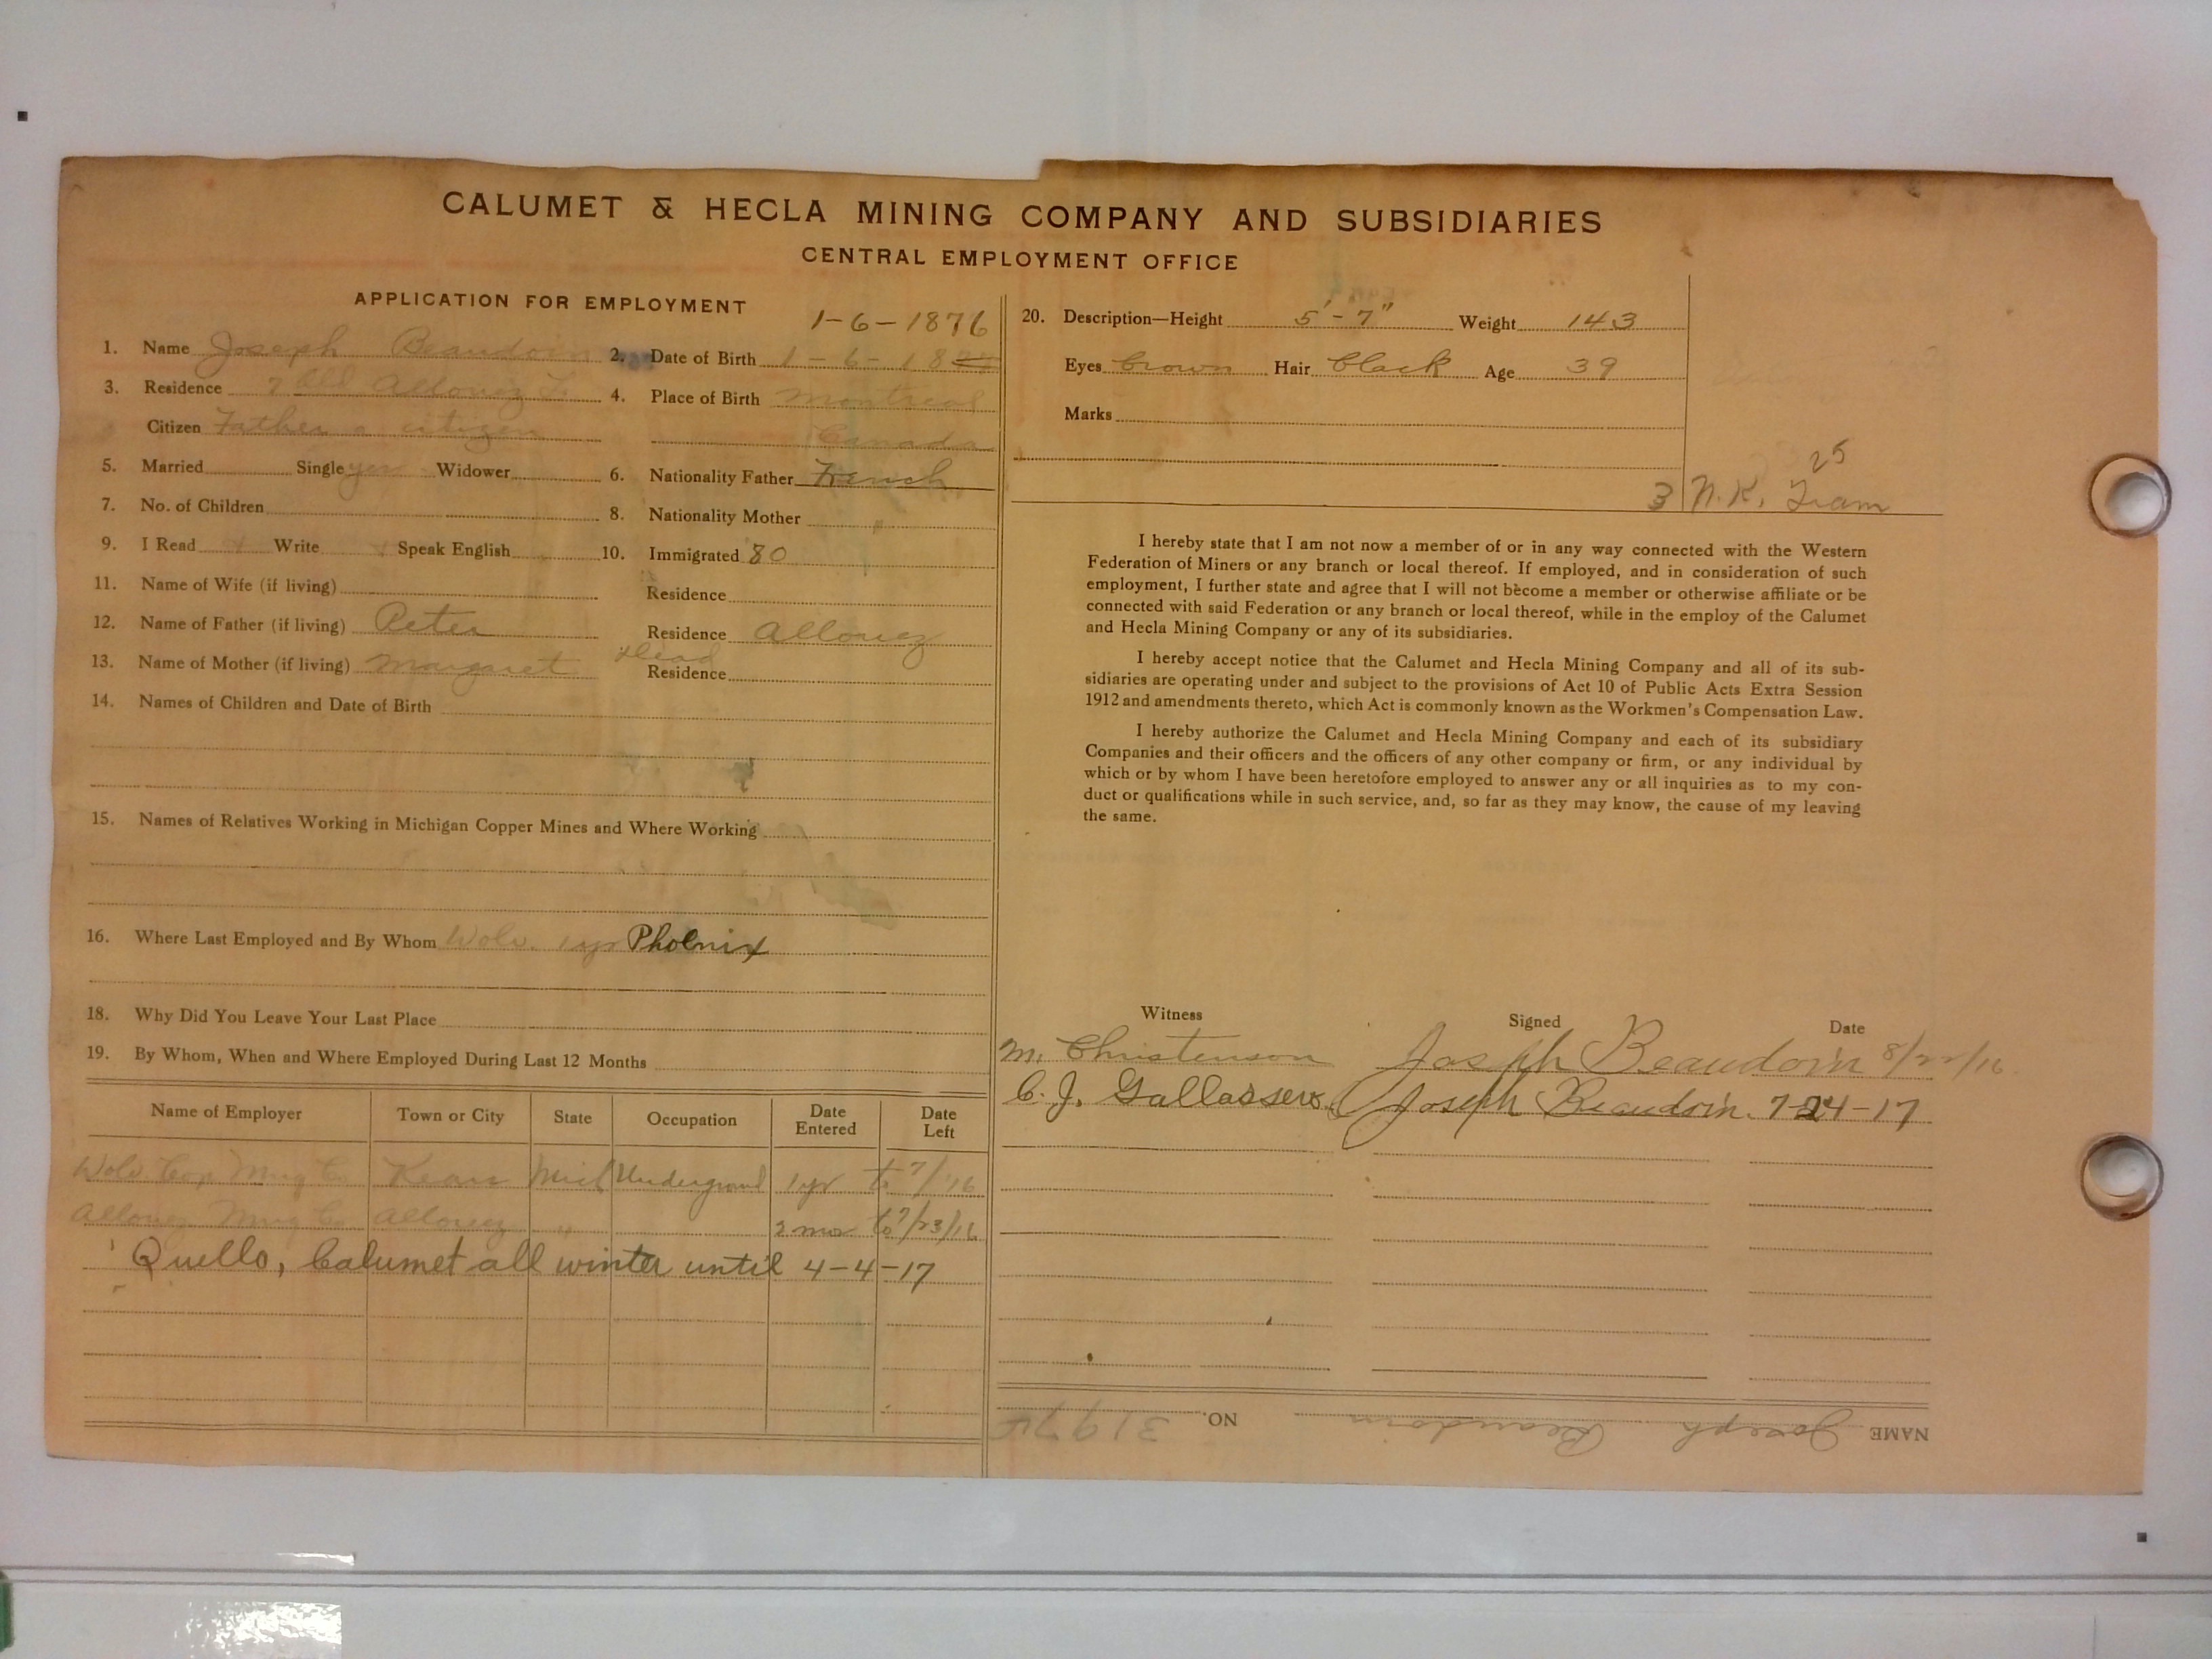 CALUMET & HECLA MINING COMPANY AND SUBSIDIARIES
CENTRAL EMPLOYMENT OFFICE
APPLICATION FOR EMPLOYMENT
1-6-1876
1. Name Joseph Beaudoin 2. Date of Birth 1-6-18
3. Residence Old Allouez 4. Place of Birth Montreal
Citizen Father a citizen Canada
5. Married Single yes Widower 6. Nationality Father French
7. No. of Children 8. Nationality Mother "
9. I Read Write Speak English 10. Immigrated 80
11. Name of Wife (if living) Residence
12. Name of Father (if living) Peter Residence Allouez
13. Name of Mother (if living) Margaret dead Residence
14. Names of Children and Date of Birth
15. Names of Relatives Working in Michigan Copper Mines and Where Working
16. Where Last Employed and By Whom Wolv. 1 yr Phoenix
18. Why Did You Leave Your Last Place
19. By Whom, When and Where Employed During Last 12 Months
Name of Employer Town or City State Occupation Date Entered Date Left
Wolv Cop Mng Co Kear Mich Underground 1 yr to 7/16
Allouez Mng Co Allouez " 2 mos to 7/23/16
Quello, Calumet all winter until 4-4-17
20. Description—Height 5'-7" Weight 143
Eyes brown Hair black Age 39
Marks
25
3 N.K. Tram
I hereby state that I am not now a member of or in any way connected with the Western
Federation of Miners or any branch or local thereof. If employed, and in consideration of such
employment, I further state and agree that I will not become a member or otherwise affiliate or be
connected with said Federation or any branch or local thereof, while in the employ of the Calumet
and Hecla Mining Company or any of its subsidiaries.
I hereby accept notice that the Calumet and Hecla Mining Company and all of its sub-
sidiaries are operating under and subject to the provisions of Act 10 of Public Acts Extra Session
1912 and amendments thereto, which Act is commonly known as the Workmen's Compensation Law.
I hereby authorize the Calumet and Hecla Mining Company and each of its subsidiary
Companies and their officers and the officers of any other company or firm, or any individual by
which or by whom I have been heretofore employed to answer any or all inquiries as to my con-
duct or qualifications while in such service, and, so far as they may know, the cause of my leaving
the same.
Witness Signed Date
M. Christenson Joseph Beaudoin 8/22/16
C. J. Gallassero Joseph Beaudoin 7-24-17
NAME Joseph Beaudoin NO.